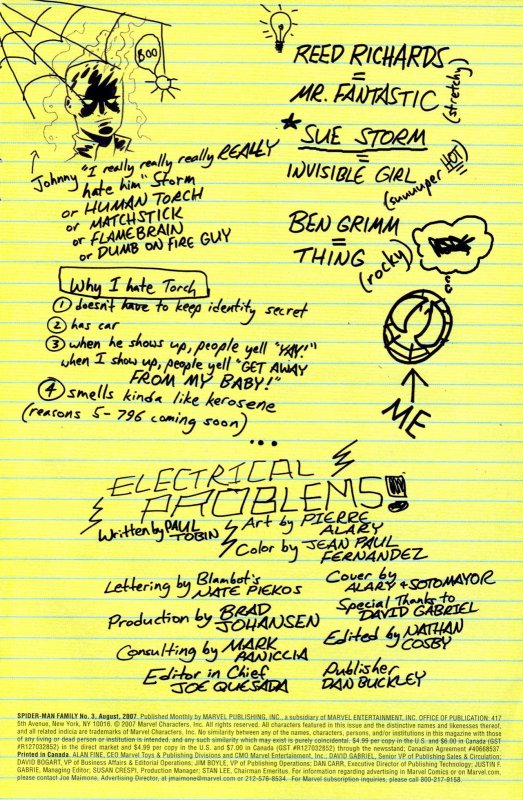 BOO
Johnny "I really really really REALLY
hate him" Storm
or HUMAN TORCH
or MATCHSTICK
or FLAMEBRAIN
or DUMB ON FIRE GUY
REED RICHARDS
=
MR. FANTASTIC
(stretchy)
SUE STORM
=
INVISIBLE GIRL
(suuuuper HOT)
BEN GRIMM
=
THING
(rocky)
ME
Why I hate Torch
1 doesn't have to keep identity secret
2 has car
3 when he shows up, people yell "YAY!"
when I show up, people yell "GET AWAY
FROM MY BABY!"
4 smells kinda like kerosene
(reasons 5-796 coming soon)
...
ELECTRICAL
PROBLEMS!!
Written by PAUL
TOBIN
Art by PIERRE
ALARY
Color by JEAN PAUL
FERNANDEZ
Lettering by Blambot's
NATE PIEKOS
Cover by
ALARY + SOTOMAYOR
Production by BRAD
JOHANSEN
Special Thanks to
DAVID GABRIEL
Consulting by MARK
PANICCIA
Edited by NATHAN
COSBY
Editor in Chief
JOE QUESADA
Publisher
DAN BUCKLEY
SPIDER-MAN FAMILY No. 3, August, 2007. Published Monthly by MARVEL PUBLISHING, INC., a subsidiary of MARVEL ENTERTAINMENT, INC. OFFICE OF PUBLICATION: 417
5th Avenue, New York, NY 10016. © 2007 Marvel Characters, Inc. All rights reserved. All characters featured in this issue and the distinctive names and likenesses thereof,
and all related indicia are trademarks of Marvel Characters, Inc. No similarity between any of the names, characters, persons, and/or institutions in this magazine with those
of any living or dead person or institution is intended, and any such similarity which may exist is purely coincidental. $4.99 per copy in the U.S. and $6.00 in Canada (GST
#R127032852) in the direct market and $4.99 per copy in the U.S. and $7.00 in Canada (GST #R127032852) through the newsstand; Canadian Agreement #40668537.
Printed in Canada. ALAN FINE, CEO Marvel Toys & Publishing Divisions and CMO Marvel Entertainment, Inc.; DAVID GABRIEL, Senior VP of Publishing Sales & Circulation;
DAVID BOGART, VP of Business Affairs & Editorial Operations; JIM BOYLE, VP of Publishing Operations; DAN CARR, Executive Director of Publishing Technology; JUSTIN F.
GABRIE, Managing Editor; SUSAN CRESPI, Production Manager; STAN LEE, Chairman Emeritus. For information regarding advertising in Marvel Comics or on Marvel.com,
please contact Joe Maimone, Advertising Director, at jmaimone@marvel.com or 212-576-8534. For Marvel subscription inquiries, please call 800-217-9158.